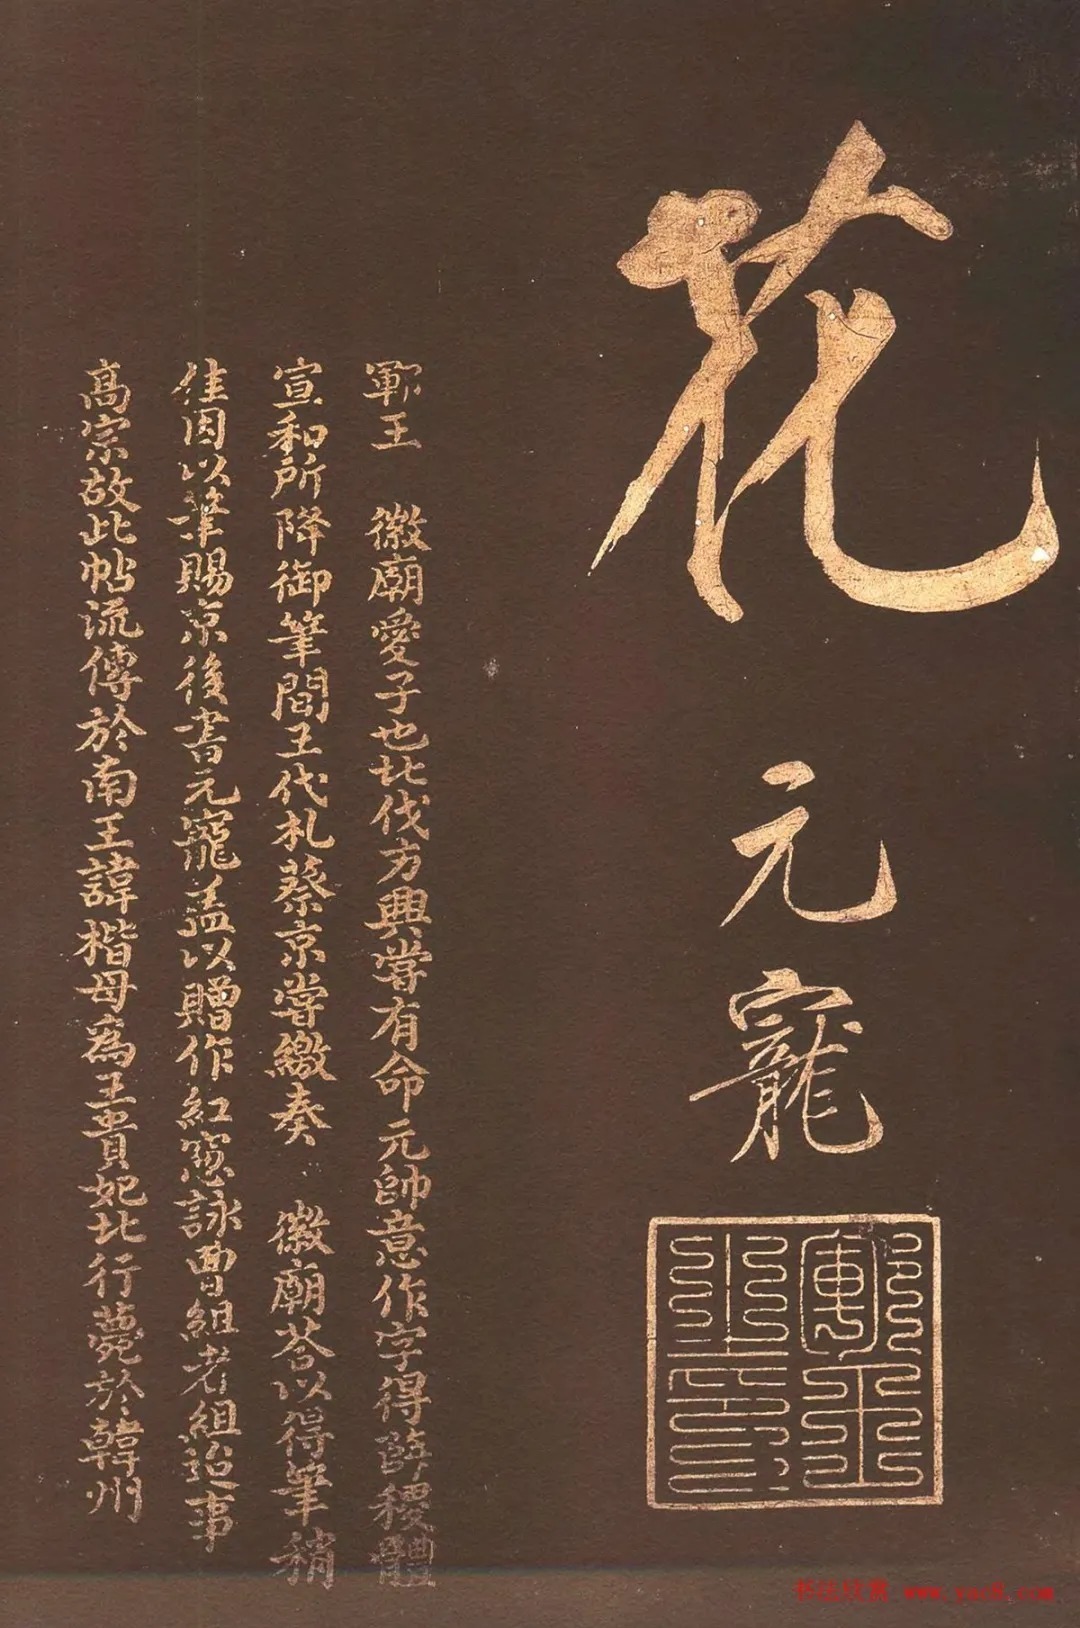 花
元寵
鄆王　徽廟愛子也北伐方興嘗有命元帥意作字得薛稷體
宣和所降御筆間王代札蔡京嘗繳奏　徽廟荅以得筆稍
佳因以筆賜京後書元寵盖以贈作紅窓詠曹組者組迨事
高宗故此帖流傳於南王諱楷母為王貴妃北行薨於韓州
書法欣賞 www.yac8.com